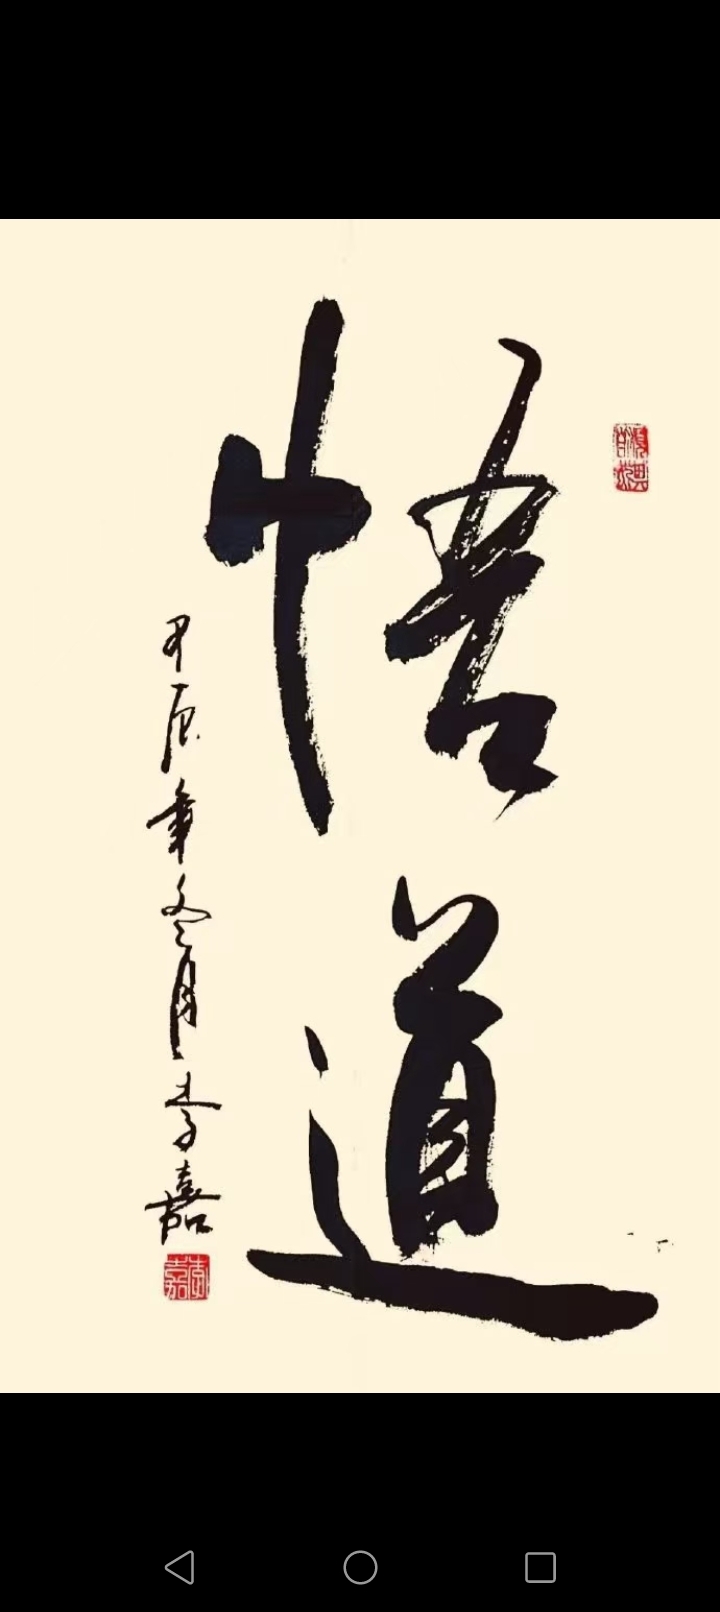 悟道
甲辰年冬月李嘉